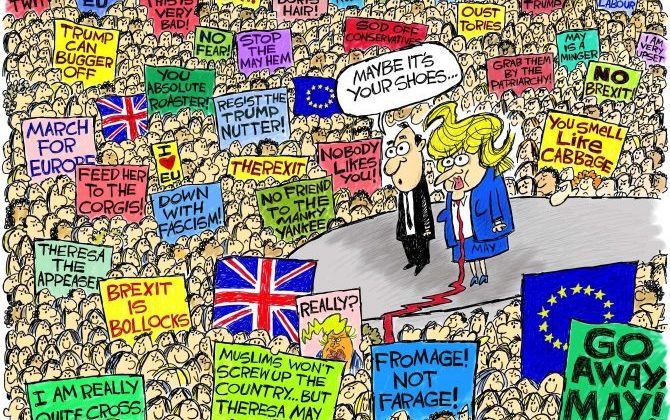 EU
THIS IS
VERY
BAD!
HAIR!
OUST
TORIES
TRUMP
LABOUR
TRUMP
CAN
BUGGER
OFF
NO
FEAR!
STOP
THE
MAYHEM
SOD OFF
CONSERVATIVES
MAY
IS A
MINGER
I AM
VERY
UPSET
GRAB THEM
BY THE
PATRIARCHY!
NO
BREXIT
MAYBE IT'S
YOUR SHOES...
YOU
ABSOLUTE
ROASTER!
RESIST THE
TRUMP
NUTTER!
MARCH
FOR
EUROPE
I ♥
EU
THEREXIT
NOBODY
LIKES
YOU!
YOU SMELL
LiKE
CABBAGE
FEED HER
TO THE
CORGIS!
DOWN
WITH
FASCISM!
NO FRIEND
TO THE
MANKY
YANKEE
MAY
THERESA
THE
APPEASER
BREXIT
IS
BOLLOCKS
REALLY?
I AM REALLY
QUITE CROSS
MUSLIMS WON'T
SCREW UP THE
COUNTRY...BUT
THERESA MAY
FROMAGE!
NOT
FARAGE!
GO
AWAY,
MAY!